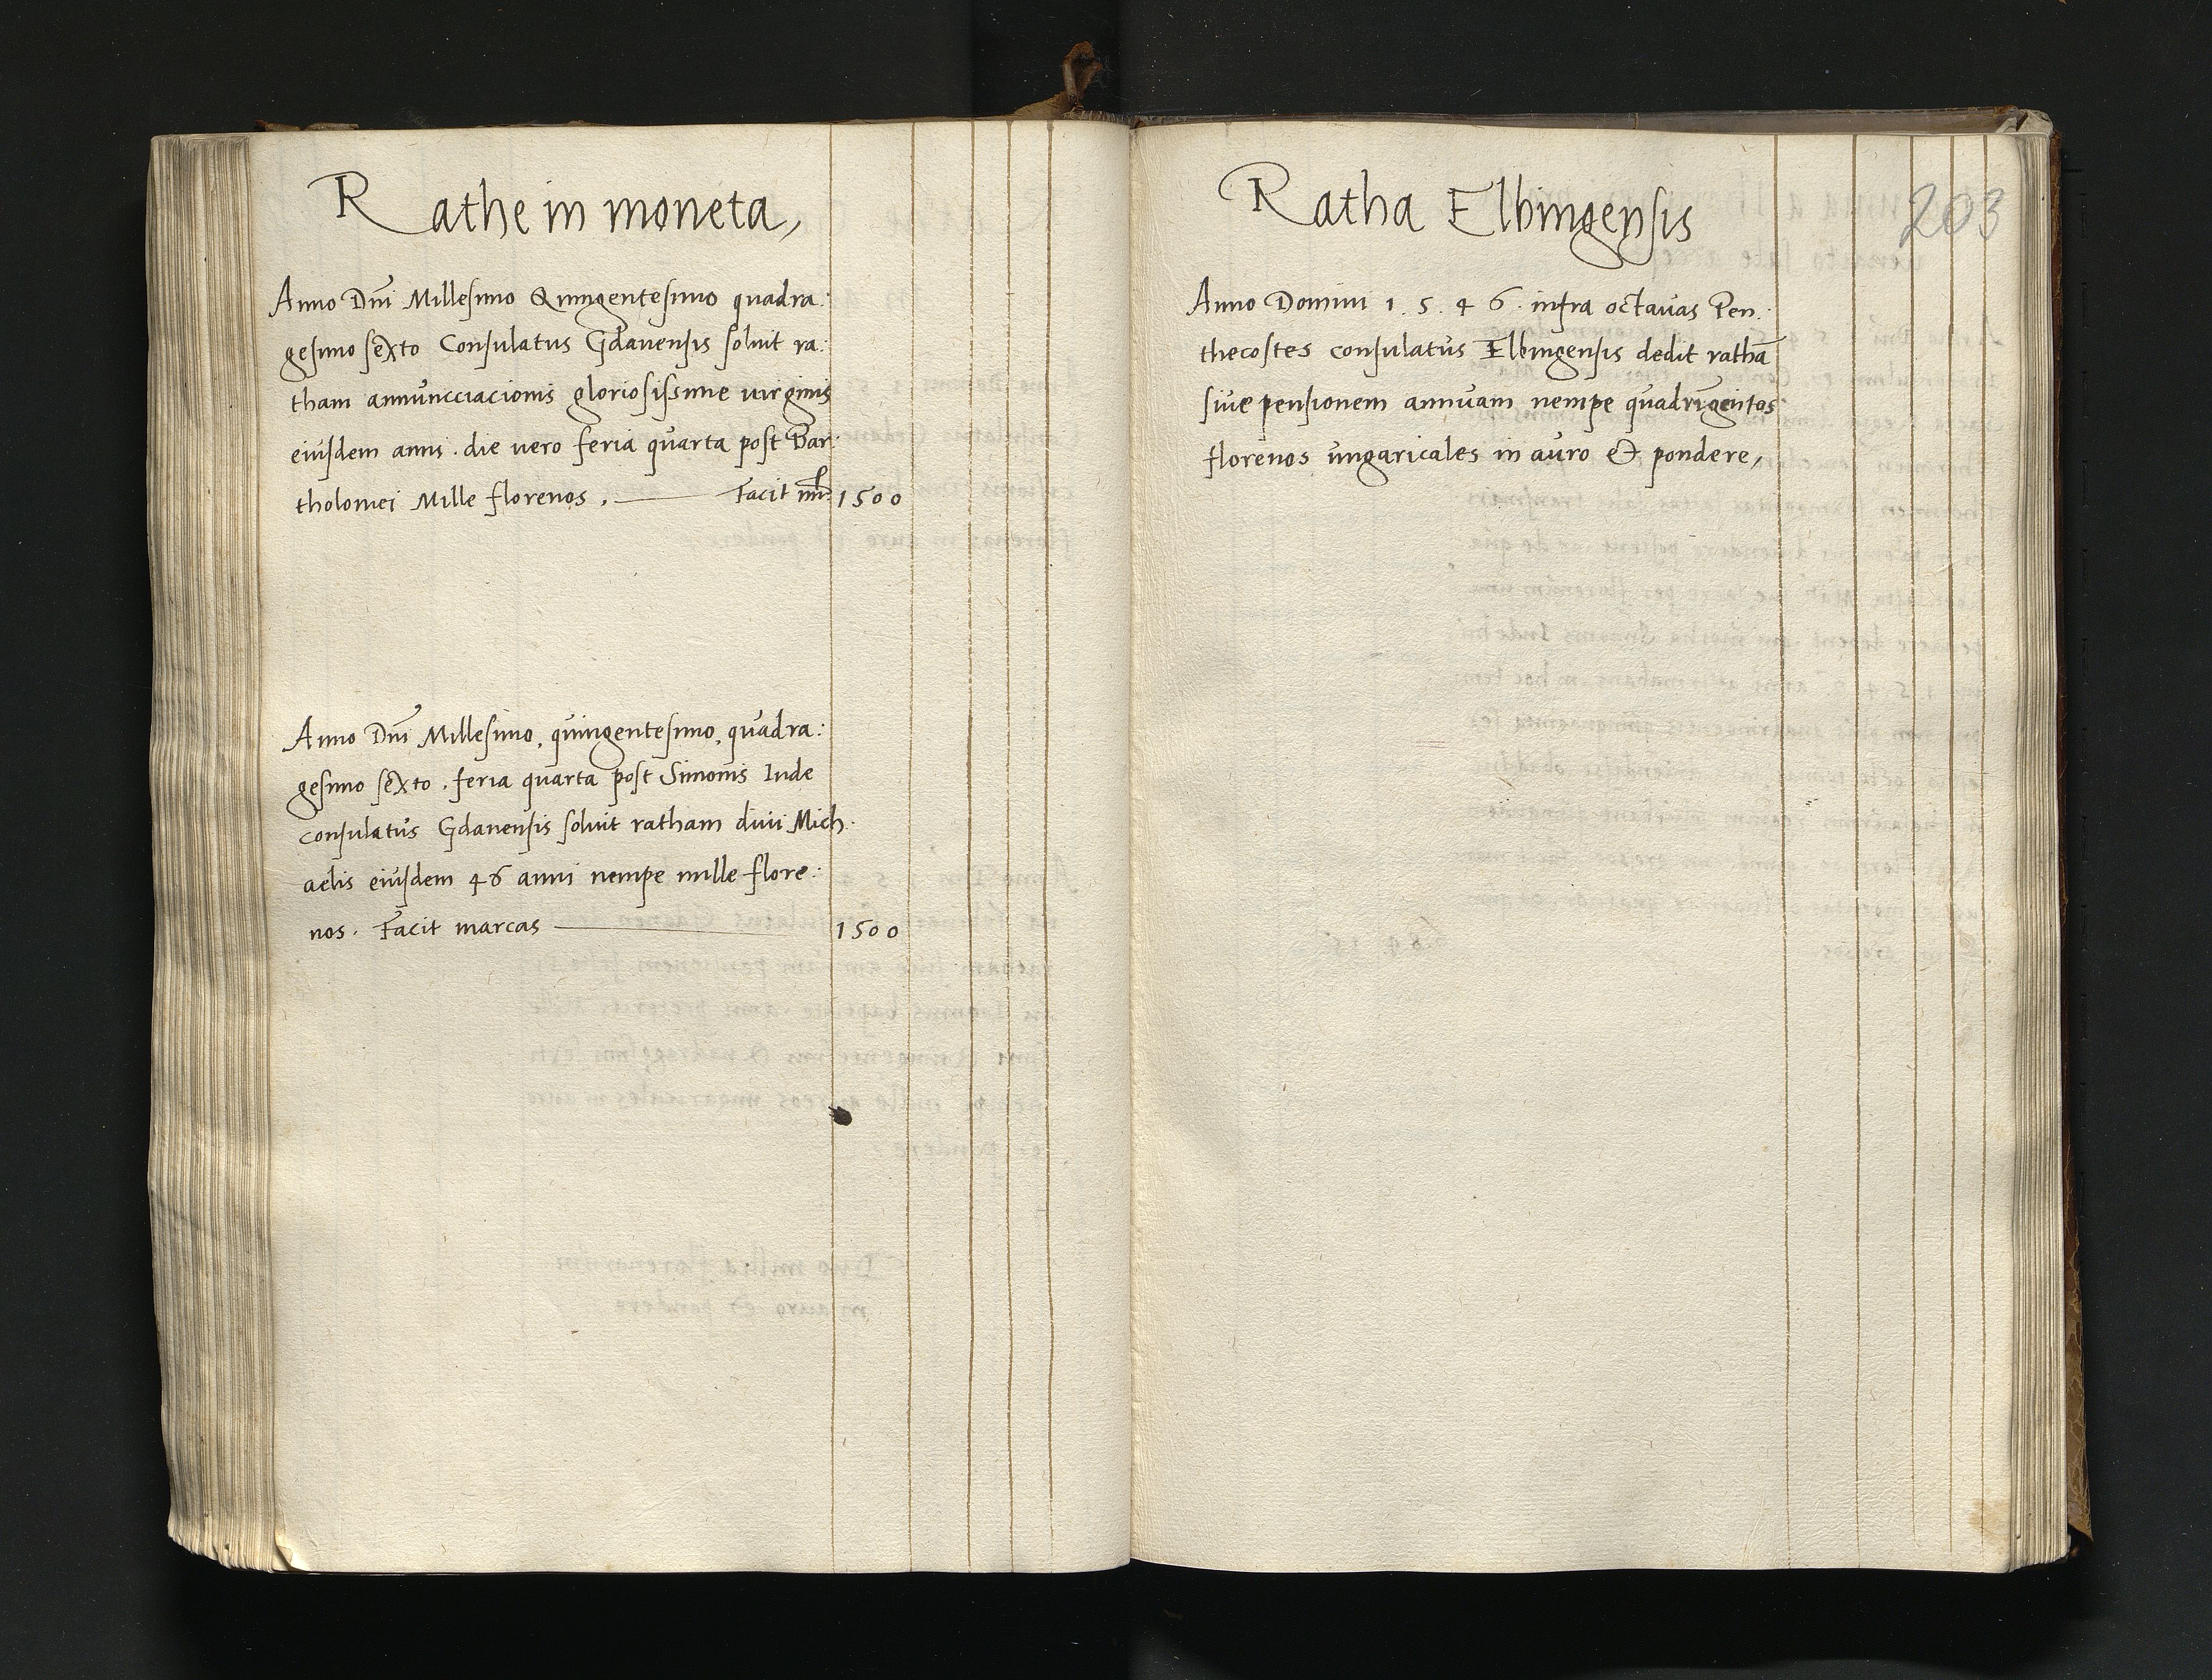 Rathe in moneta,
Anno Dnī Millesimo Quingentesimo quadra:
gesimo sexto Consulatus Gdanensis soluit ra:
tham annuncciacionis gloriosissime uirginis
eiusdem anni . die uero feria quarta post Bar:
tholomei Mille florenos . Facit 1500
Anno Dnī Millesimo, quingentesimo, quadra:
gesimo sexto . feria quarta post Simonis Iude
consulatus Gdanensis soluit ratham diui Mich
aelis eiusdem 46 anni nempe mille flore:
nos. Facit marcas 1500
Ratha Elbingensis
203
Anno Domini 1. 5. 4 6. infra octauas Pen:
thecostes consulatus Elbingensis dedit rathā
siue pensionem annuam nempe quadringentos
florenos ungaricales in auro & pondere,